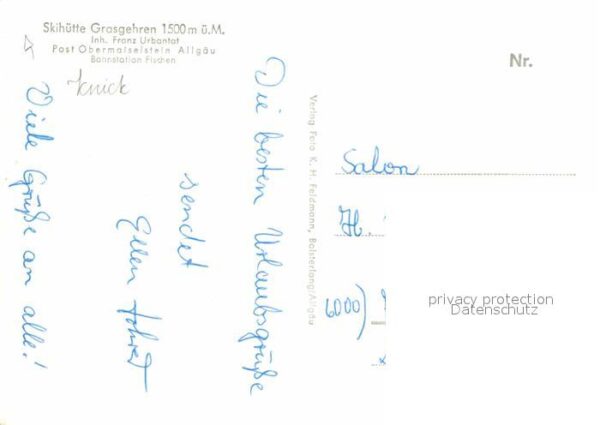 Skihütte Grasgehren 1500 m ü.M.
Inh. Franz Urbantat
Post Obermaiselstein Allgäu
Bahnstation Fischen
Knick
Die besten Urlaubsgrüße
sendet
Ellen
Viele Grüße an alle!
Verlag Foto K. H. Feldmann, Bolsterlang/Allgäu
Nr.
Salon
H.
6000)
privacy protection
Datenschutz